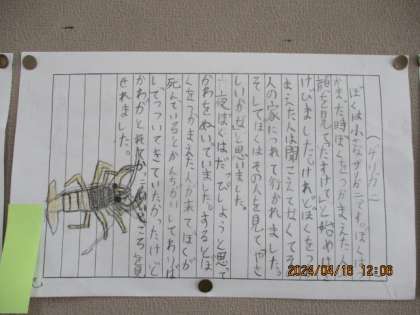 (ザリガニ)
ぼくは小さなザリガニです。ぼくは、
かまった時ぼくをつかまえた人の
顔を見て「たすけて」と始めは
けびましたけれどぼくをつ
まえた人は聞こえてなくてその
人の家につれて行かれました。
そしてぼくはその人を見て
しいかなと思いました。
夜ぼくはだっぴしようと思って
かわをぬいでいました。するとぼ
くをつかまえた人が来てぼくが
死んでいるとかんちがいしてありば
しでつついてきていたかったけど
かわがと
せれました。
2024/04/16 12:06